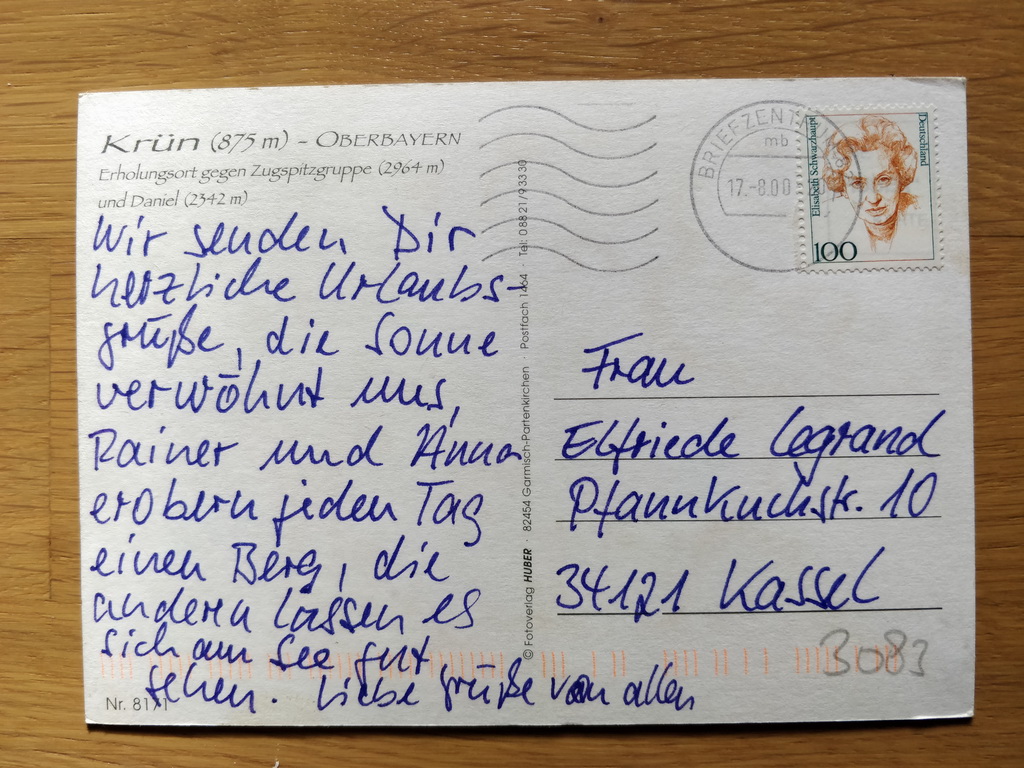 Krün (875 m) – OBERBAYERN
Erholungsort gegen Zugspitzgruppe (2964 m)
und Daniel (2342 m)
Wir senden Dir
herzliche Urlaubs-
grüße, die Sonne
verwöhnt uns,
Rainer und Anna
erobern jeden Tag
einen Berg, die
anderen lassen es
sich am See gut
gehen. Liebe Grüße von allen
Nr. 8171
© Fotoverlag HUBER · 82454 Garmisch-Partenkirchen · Postfach 1464 · Tel: 08821/93330
BRIEFZENTRUM
mb
17.-8.00
Elisabeth Schwarzhaupt
Deutschland
100
Frau
Elfriede Legrand
Pfannkuchstr. 10
34121 Kassel
3083